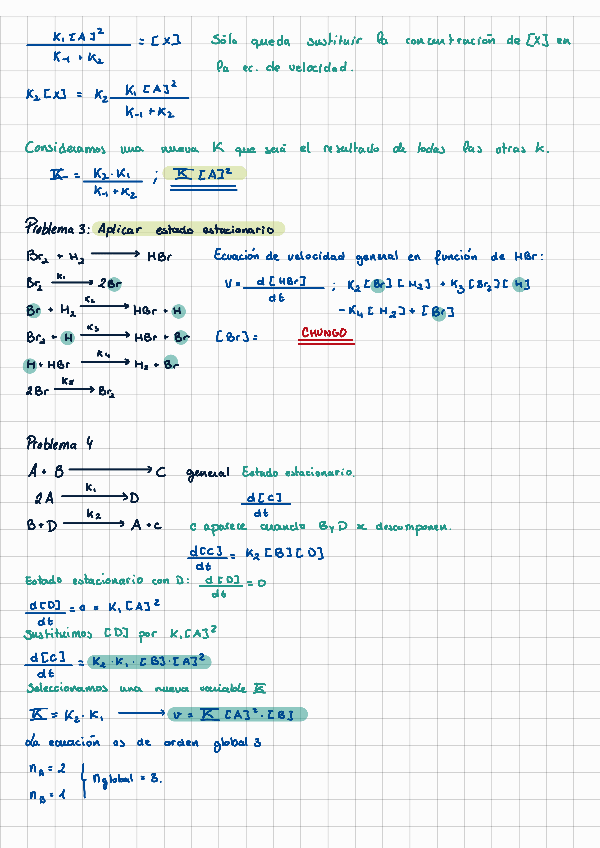 K₁[A]² / K₋₁ + K₂ = [X] Sólo queda sustituir la concentración de [X] en
la ec. de velocidad.
K₂[X] = K₂ K₁[A]² / K₋₁ + K₂
Consideramos una nueva K que será el resultado de todas las otras k.
K̅ = K₂·K₁ / K₋₁ + K₂ ; K̅ [A]²
Problema 3: Aplicar estado estacionario
Br₂ + H₂ ⟶ HBr Ecuación de velocidad general en función de HBr:
Br₂ ⟶ K₁ 2Br V = d[HBr] / dt ; K₂[Br][H₂] + K₃[Br₂][H]
Br + H₂ ⟶ K₂ HBr + H - K₄[H₂] + [Br]
Br₂ + H ⟶ K₃ HBr + Br [Br] = CHUNGO
H + HBr ⟶ K₄ H₂ + Br
2Br ⟶ K₅ Br₂
Problema 4
A + B ⟶ C general Estado estacionario.
2A ⟶ K₁ D d[C] / dt
B + D ⟶ K₂ A + C C aparece cuando B y D se descomponen.
d[C] / dt = K₂[B][D]
Estado estacionario con D: d[D] / dt = 0
d[D] / dt = 0 = K₁[A]²
Sustituimos [D] por K₁[A]²
d[C] / dt = K₂·K₁·[B]·[A]²
Seleccionamos una nueva variable K̅
K̅ = K₂·K₁ ⟶ v = K̅ [A]²·[B]
La ecuación es de orden global 3
n_A = 2
n global = 3.
n_B = 1